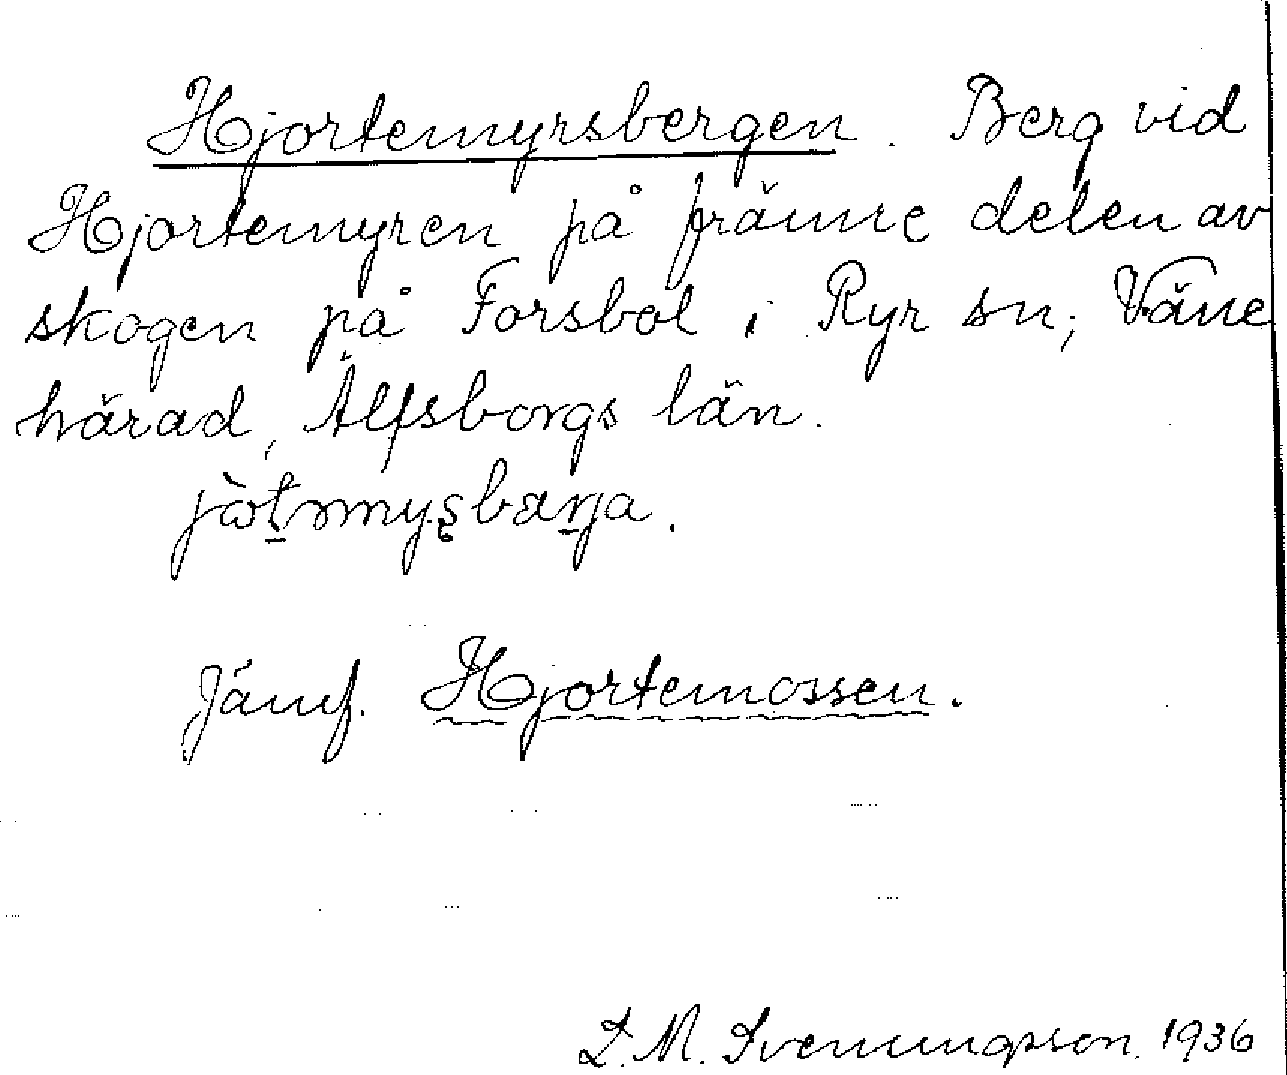 Hjortemyrsbergen. Berg vid
Hjortemyren på främre delen av
skogen på Forsbol i Ryr sn; Väne
härad, Älfsborgs län.
Jämf. Hjortemossen.
L. M. Svenungsson. 1936